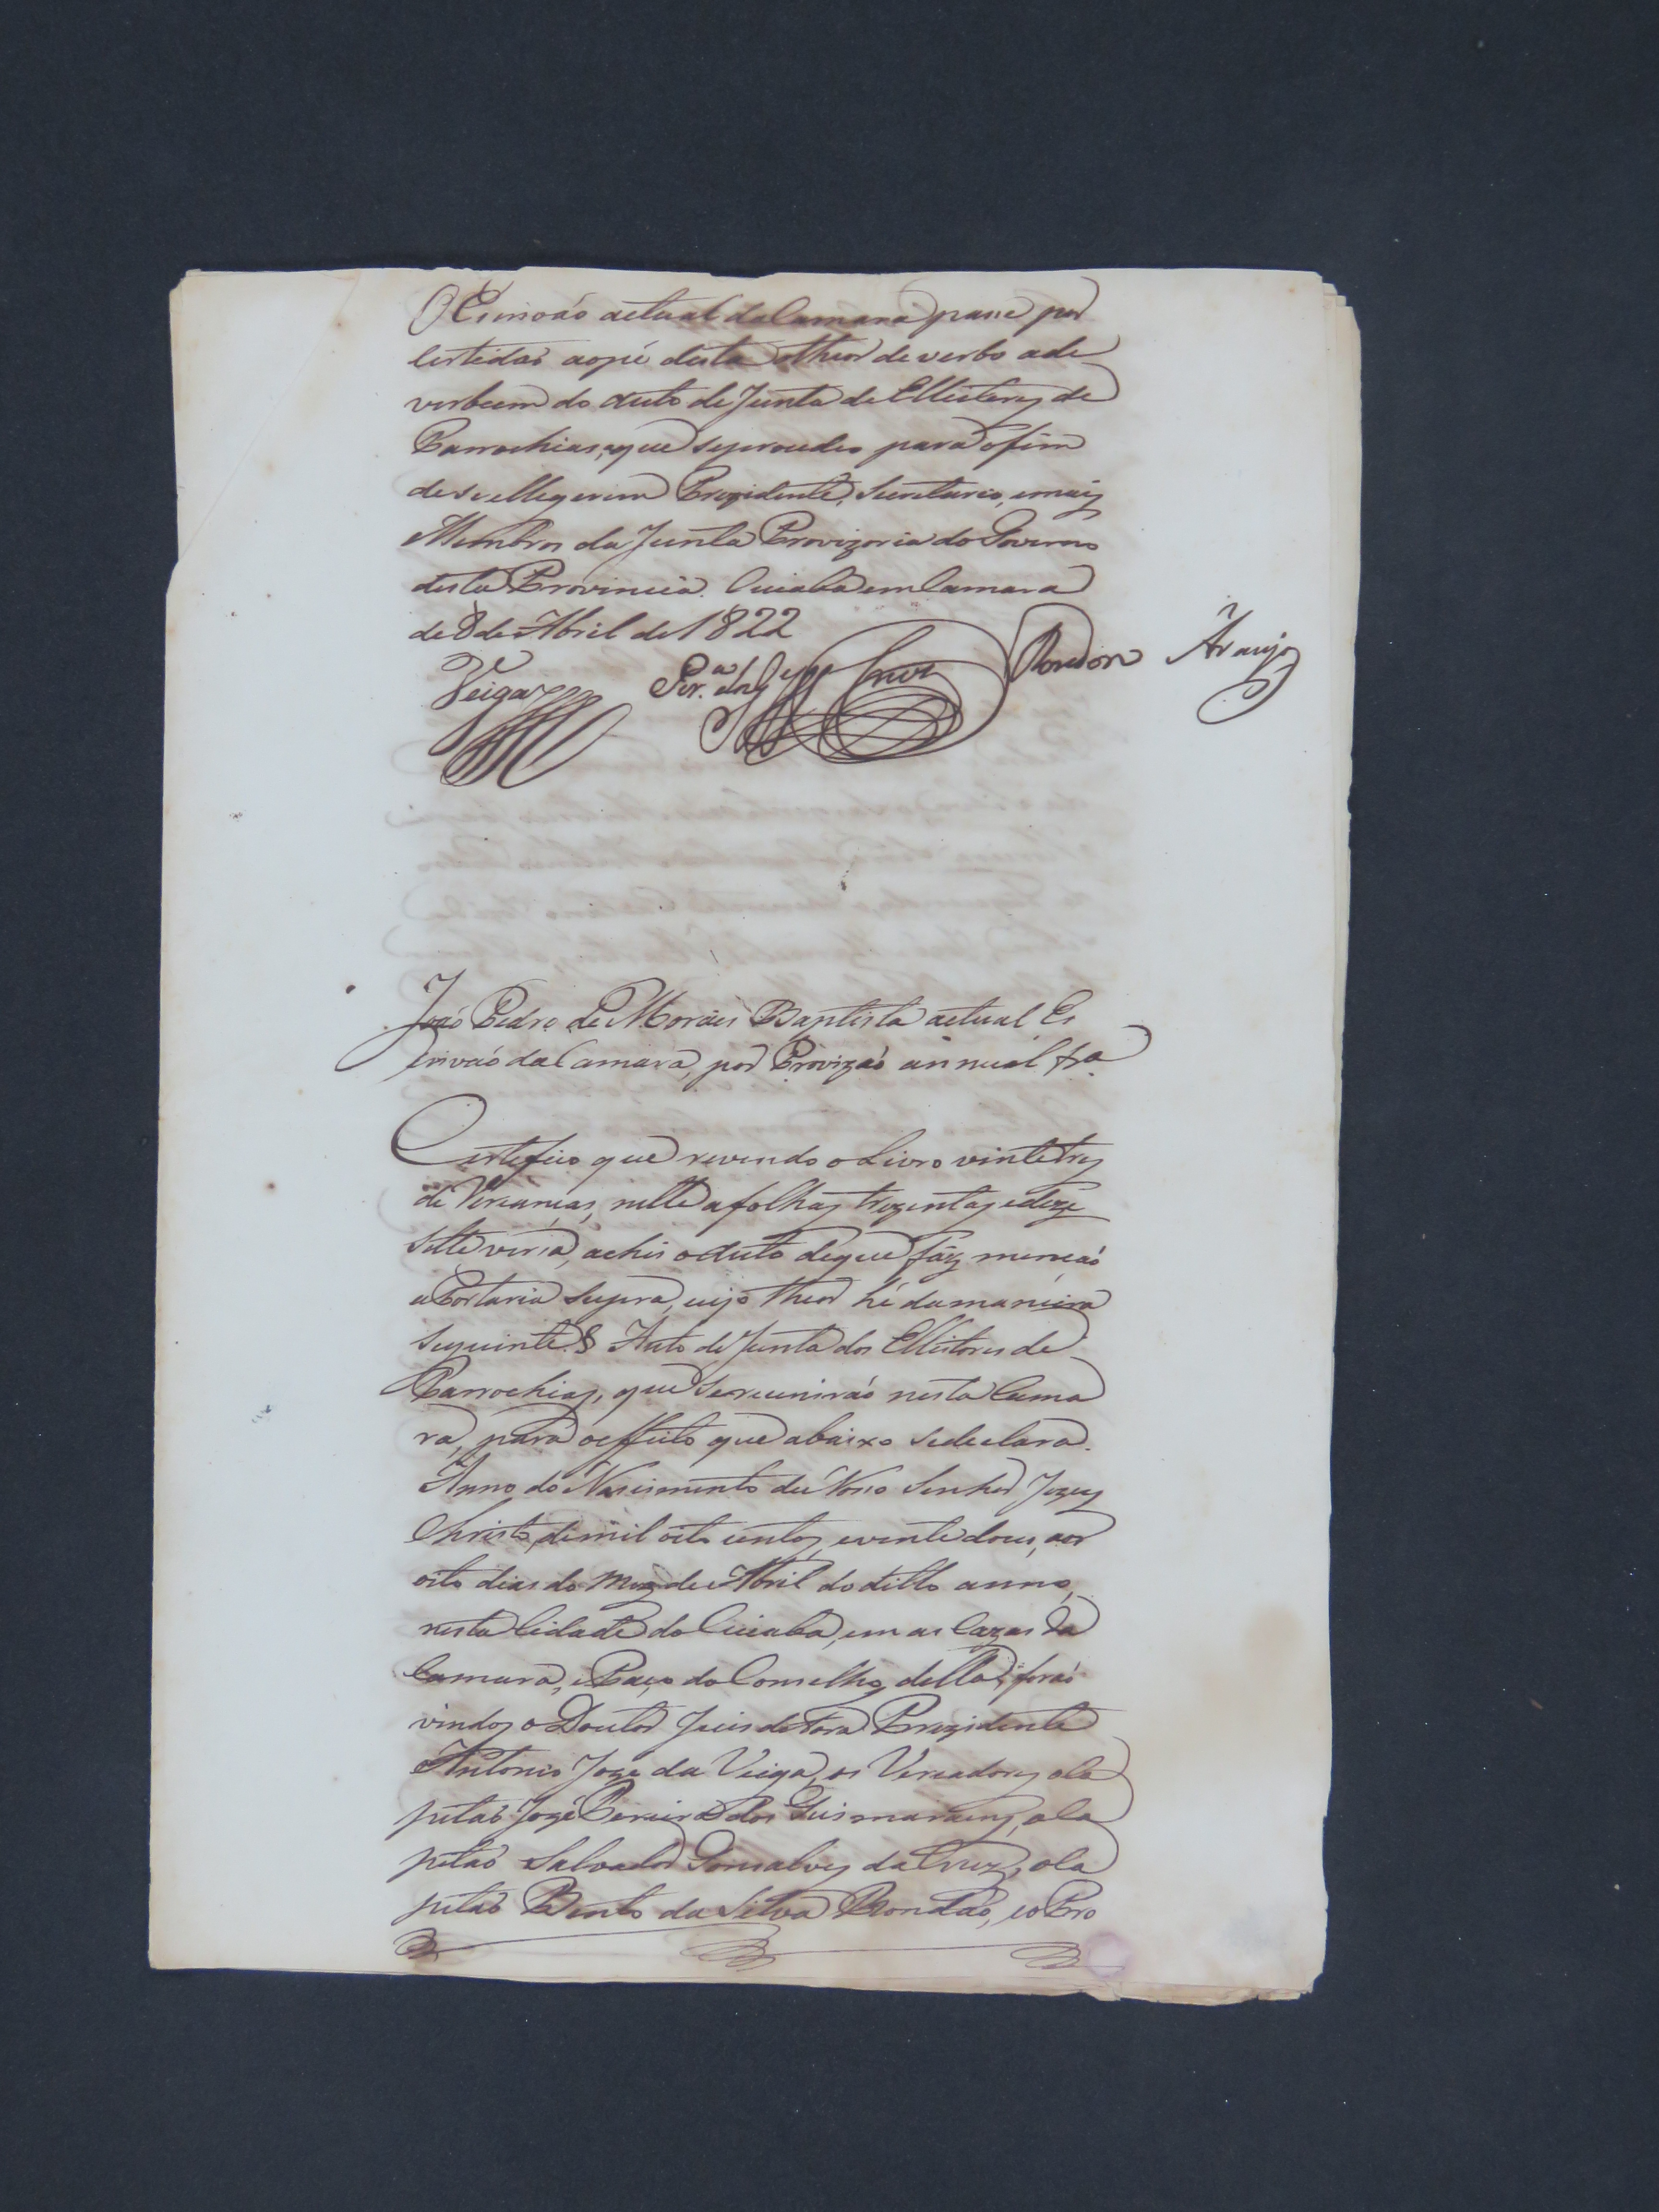 O Escrivaó actual da Camara passe por
Certidaó aopé desta otheor de verbo ade
verbum do auto de Junta de Elleitores de
Parrochias, que seprocedeo para ófim
de se ellegerem Prezidente, Secretario, emais
Membros da Junta Provizoria do Governo
desta Provincia. Cuiabá em Camara
de 8 de Abril de 1822
Veiga Per.ª Cruz Rondon Araujo
João Pedro de Moraes Baptista actual Es
crivaó da Camara, por Provizaó annual &ª
Certefico que revendo o Livro vintetres
de Vereanças, nelle afolhas trezentas edeze
sette versa, achei o auto deque faz mencaó
a Portaria Supra, cujo theor hé damaneira
seguinte. § Auto de Junta dos Elleitores de
Parrochias, que sereuniraó nesta Cama
ra, para oeffeito que abaixo sedeclara.
Anno do Nascimento de Nosso Senhor Jezus
Christo, demil oito centos, evinte dous, aos
oito dias do mez de Abril do ditto anno,
nesta Cidade do Cuiabá, em as Cazas da
Camara, e Paço do Conselho della, foraó
vindos o Doutor Juis de Fora Prezidente
Antonio Joze da Veiga, os Vereadores oCa
pitaó José Pereira dos Guimaraens, oCa
pitaó Salvador Gonsalves da Cruz, oCa
pitaó Bento da Silva Rondaó, eo Pro